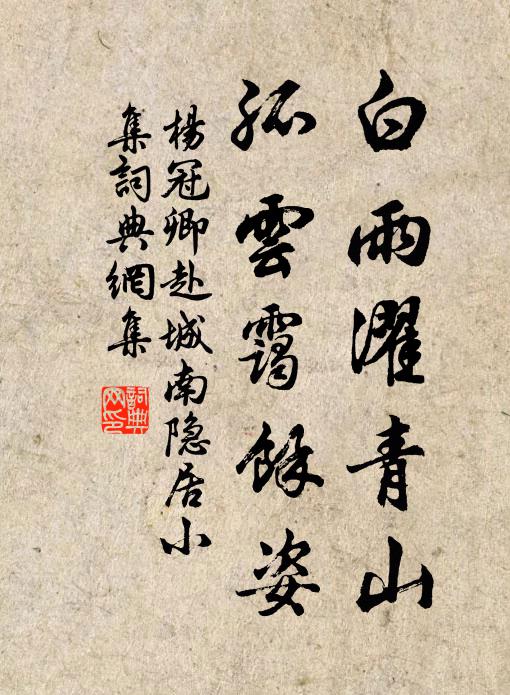 白雨濯青山
孤雲靄餘姿
楊冠卿赴城南隐居小
集詞典網集
詞典网印